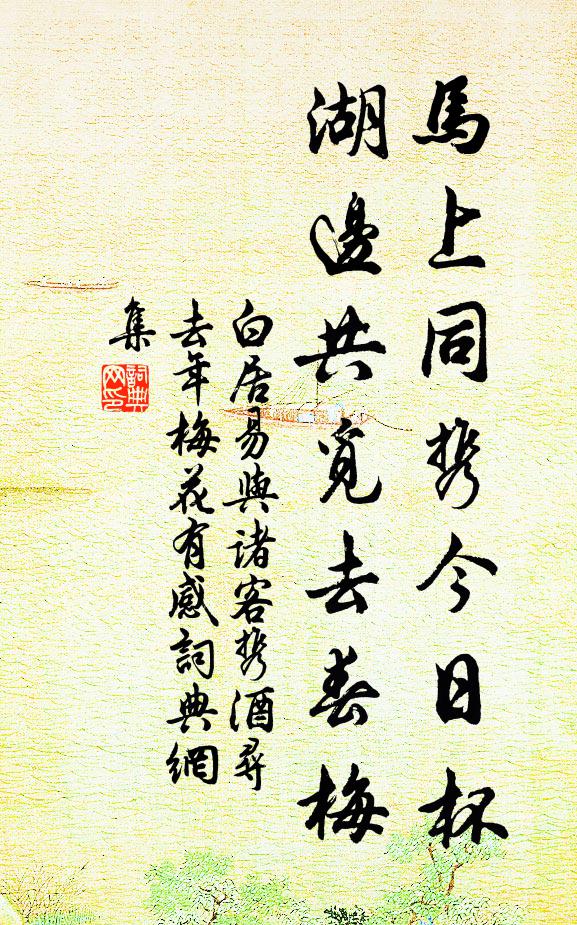 馬上同携今日杯
湖邊共覓去春梅
白居易與諸客携酒尋
去年梅花有感詞典網
集
詞典
网印